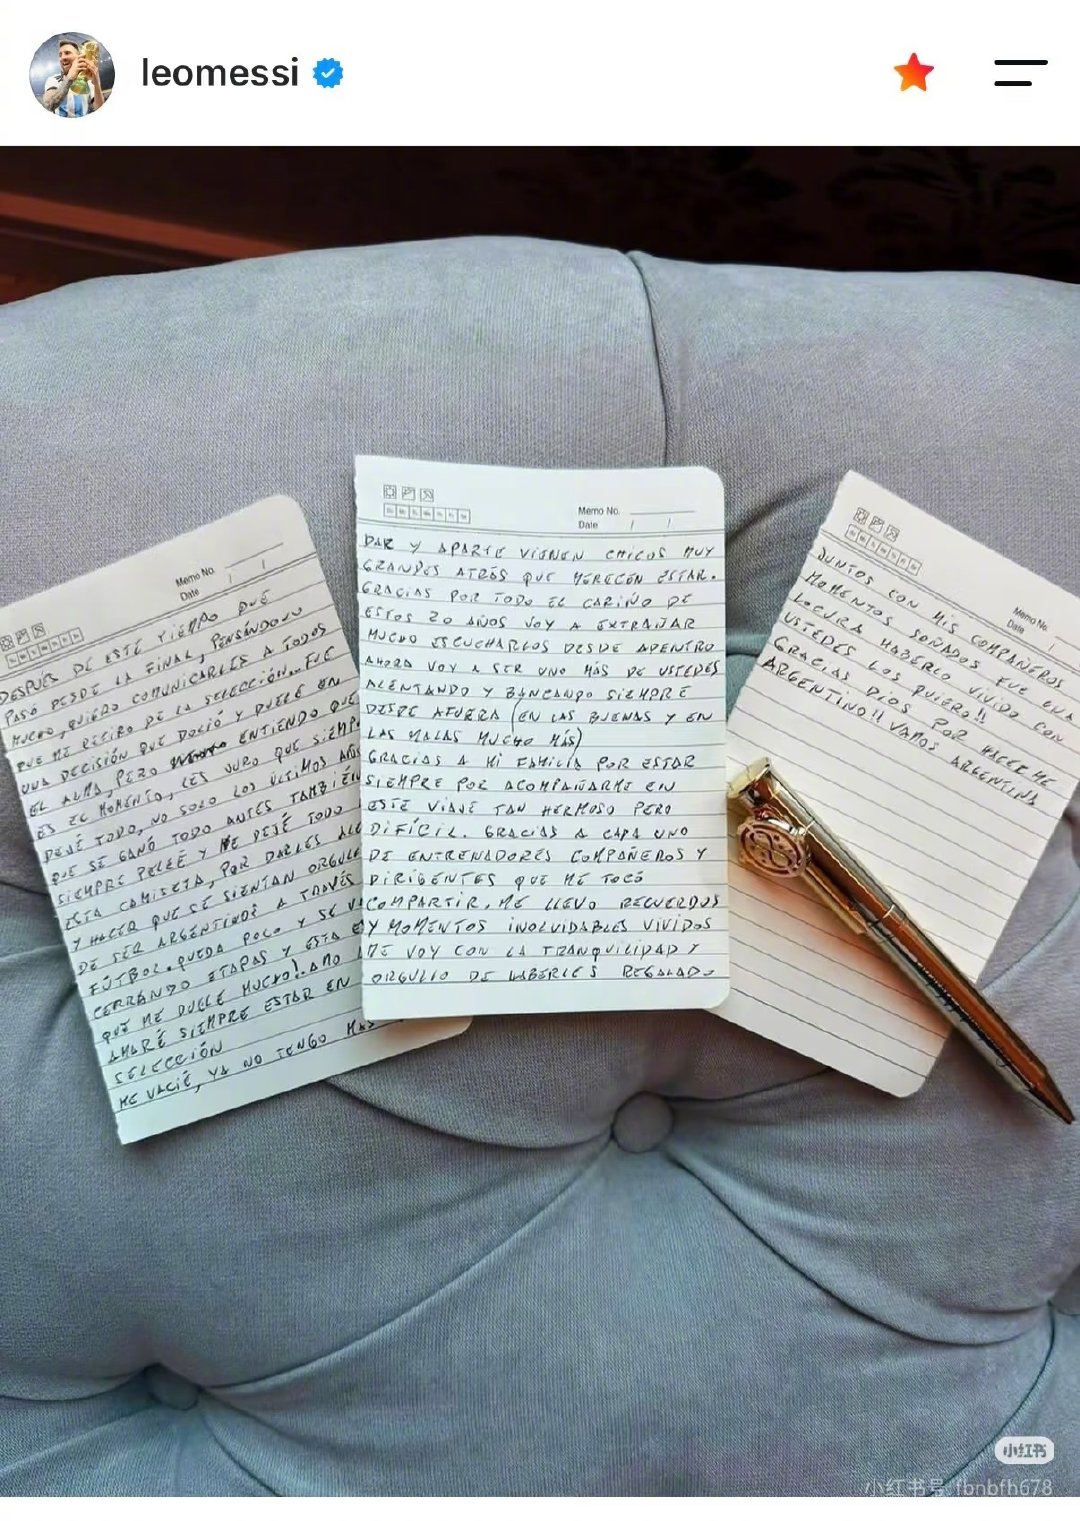 leomessi
Memo No.
Date / /
DESPUÉS DE ESTE TIEMPO QUE
PASÓ DESDE LA FINAL, PENSÁNDOLO
MUCHO, QUIERO COMUNICARLES A TODOS
QUE ME RETIRO DE LA SELECCIÓN... FUE
UNA DECISIÓN QUE DOLIÓ Y DUELE EN
EL ALMA, PERO ENTIENDO QUE
ES EL MOMENTO, LES JURO QUE SIEMP
DEJÉ TODO, NO SOLO LOS ÚLTIMOS AÑOS
QUE SE GANÓ TODO ANTES TAMBIÉN
SIEMPRE PELEÉ Y ME DEJÉ TODO
ESTA CAMISETA, POR DARLES ALE
Y HACER QUE SE SIENTAN ORGULL
DE SER ARGENTINOS A TRAVÉS
FÚTBOL. QUEDA POCO Y SE V
CERRANDO ETAPAS Y ESTA E
QUE ME DUELE MUCHO! AMO
AMARÉ SIEMPRE ESTAR EN
SELECCIÓN
ME VACIÉ, YA NO TENGO MAS
Memo No.
Date / /
DAR Y APARTE VIENEN CHICOS MUY
GRANDES ATRÁS QUE MERECEN ESTAR.
GRACIAS POR TODO EL CARIÑO DE
ESTOS 20 AÑOS VOY A EXTRAÑAR
MUCHO ESCUCHARLOS DESDE ADENTRO
AHORA VOY A SER UNO MÁS DE USTEDES
ALENTANDO Y BANCANDO SIEMPRE
DESDE AFUERA (EN LAS BUENAS Y EN
LAS MALAS MUCHO MÁS)
GRACIAS A MI FAMILIA POR ESTAR
SIEMPRE POR ACOMPAÑARME EN
ESTE VIAJE TAN HERMOSO PERO
DIFÍCIL. GRACIAS A CADA UNO
DE ENTRENADORES COMPAÑEROS Y
DIRIGENTES QUE ME TOCÓ
COMPARTIR. ME LLEVO RECUERDOS
Y MOMENTOS INOLVIDABLES VIVIDOS
ME VOY CON LA TRANQUILIDAD Y
ORGULLO DE HABERLES REGALADO
Memo No.
Date /
JUNTOS CON MIS COMPAÑEROS
MOMENTOS SOÑADOS FUE UNA
LOCURA HABERLO VIVIDO CON
USTEDES LOS QUIERO!!
GRACIAS DIOS POR HACERME
ARGENTINO!! VAMOS ARGENTINA
小红书
小红书号:fbnbfh678